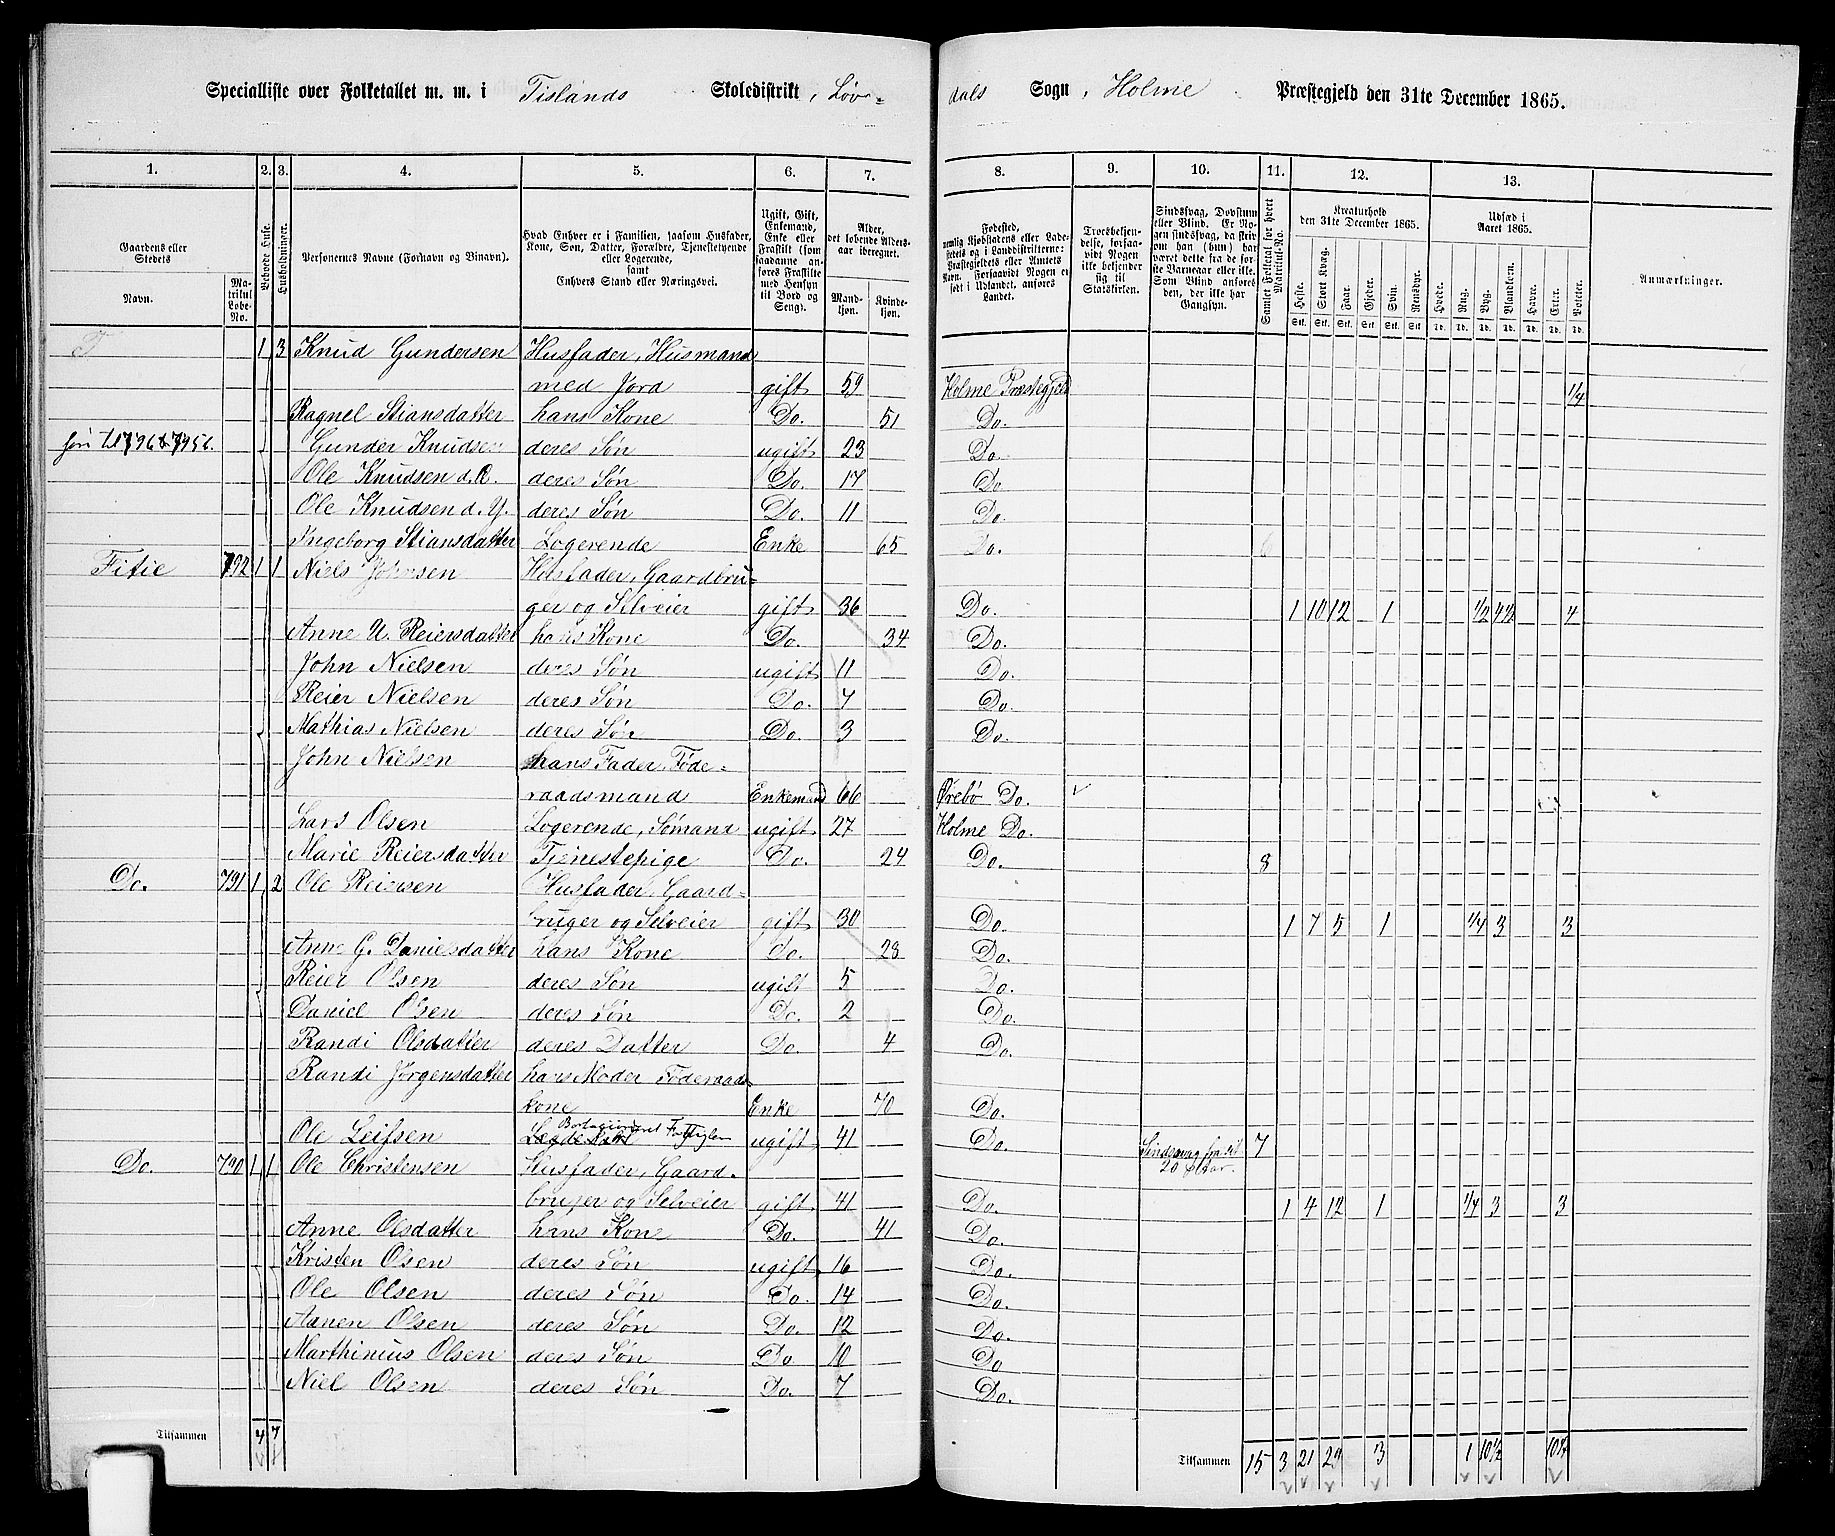 Specialliste over Folketallet m. m. i Tislands Skoledistrikt, Løv=
dals Sogn, Holme Præstegjeld den 31te December 1865.
1. 2. 3. 4. 5. 6. 7. 8. 9. 10. 11. 12. 13.
Gaardens eller Stedets
Navn.
Matrikul Løbe-No.
Beboede Huse.
Husholdninger.
Personernes Navne (Fornavn og Binavn).
Hvad Enhver er i Familien, saasom Husfader, Kone, Søn, Datter, Forældre, Tjenestetyende eller Logerende, samt Enhvers Stand eller Næringsvei.
Ugift, Gift, Enkemand, Enke eller Fraskilt (som saadanne anføres Fraskilte med Hensyn til Bord og Seng).
Alder, det løbende Aldersaar iberegnet.
Mandkjøn. Kvindekjøn.
Fødested, nemlig Kjøbstadens eller Ladestedets og i Landdistrikterne: Præstegjeldets eller Amtets Navn. Forsaavidt Nogen er født i Udlandet, anføres Landet.
Troesbekjendelse, forsaavidt Nogen ikke bekjender sig til Statskirken.
Sindssvag, Døvstum eller Blind. Er Nogen sindssvag, da skrives om han (hun) har været dette fra de første Barneaar eller ikke. Som Blind anføres den, der ikke har Gangsyn.
Samlet Folketal for hvert Matrikul-No.
Kreaturhold den 31te December 1865.
Heste. Stort Kvæg. Faar. Gjeder. Svin. Rensdyr.
Udsæd i Aaret 1865.
Hvede. Rug. Byg. Blandkorn. Havre. Erter. Poteter.
Anmærkninger.
1 3 Knud Gundersen Husfader, Husmand
med Jord gift 59 Holme Præstegjeld 1/4
Ragnel Stiansdatter hans Kone Do. 51 Do.
Gunder Knudsen deres Søn ugift 23 Do.
Ole Knudsen d. Æ. deres Søn Do. 17 Do.
Ole Knudsen d. Y. deres Søn Do. 11 Do.
Ingeborg Stiansdatter Logerende Enke 65 Do. 6
Fitie 792 1 1 Niels Johnsen Husfader, Gaardbru-
ger og Selveier gift 36 Do. 1 10 12 1 1/2 4 1/2 4
Anne U. Reiersdatter hans Kone Do. 34 Do.
John Nielsen deres Søn ugift 11 Do.
Reier Nielsen deres Søn Do. 7 Do.
Mathias Nielsen deres Søn Do. 3 Do.
John Nielsen hans Fader, Føde=
raadsmand Enkemand 66 Ørebø Do.
Lars Olsen Logerende, Sømand ugift 27 Holme Do.
Marie Reiersdatter Tjenestepige Do. 24 Do. 8
Do. 791 1 2 Ole Reiersen Husfader, Gaard=
bruger og Selveier gift 30 Do. 1 7 5 1 1/4 3 3
Anne G. Danielsdatter hans Kone Do. 28 Do.
Reier Olsen deres Søn ugift 5 Do.
Daniel Olsen deres Søn Do. 2 Do.
Randi Olsdatter deres Datter Do. 4 Do.
Randi Jørgensdatter hans Moder Føderaads
kone Enke 70 Do.
Ole Leifsen ugift 41 Do. Sindssvag fra sit 7
20 Aar.
Do. 790 1 1 Ole Christensen Husfader, Gaard-
bruger og Selveier gift 41 Do. 1 4 12 1 1/4 3 3
Anne Olsdatter hans Kone Do. 41 Do.
Kristen Olsen deres Søn ugift 16 Do.
Ole Olsen deres Søn Do. 14 Do.
Aanen Olsen deres Søn Do. 12 Do.
Marthinius Olsen deres Søn Do. 10 Do
Niel Olsen deres Søn Do. 7 Do.
Tilsammen 4 7 Tilsammen 15 3 21 29 3 1 10 1/2 10 1/4